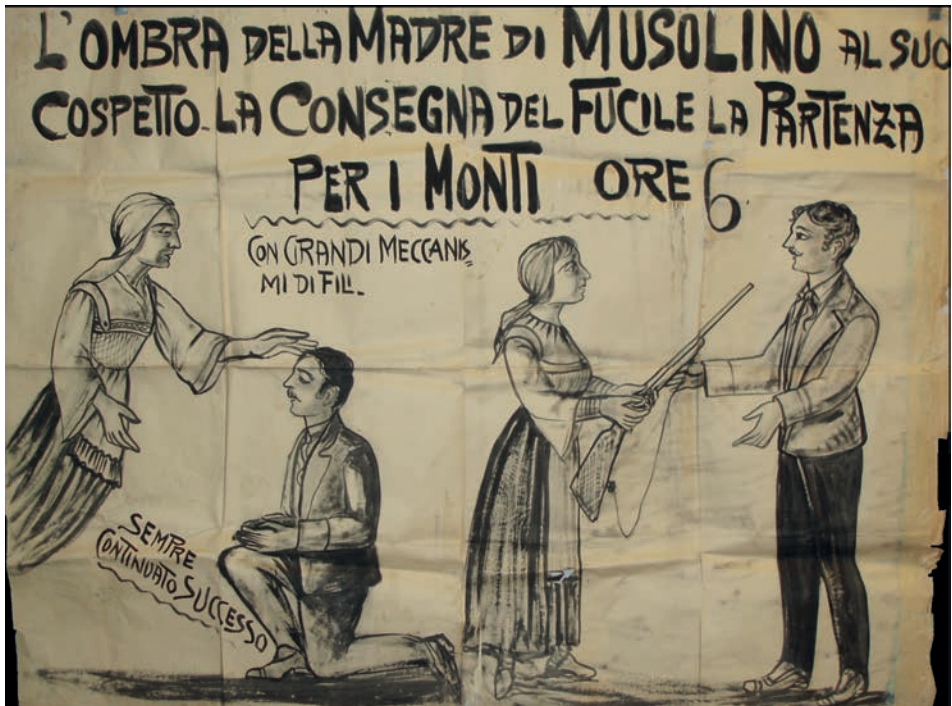 L'OMBRA DELLA MADRE DI MUSOLINO AL SUO
COSPETTO. LA CONSEGNA DEL FUCILE LA PARTENZA
PER I MONTI ORE 6
CON GRANDI MECCANIS=
MI DI FILI.
SEMPRE
CONTINUATO SUCCESSO